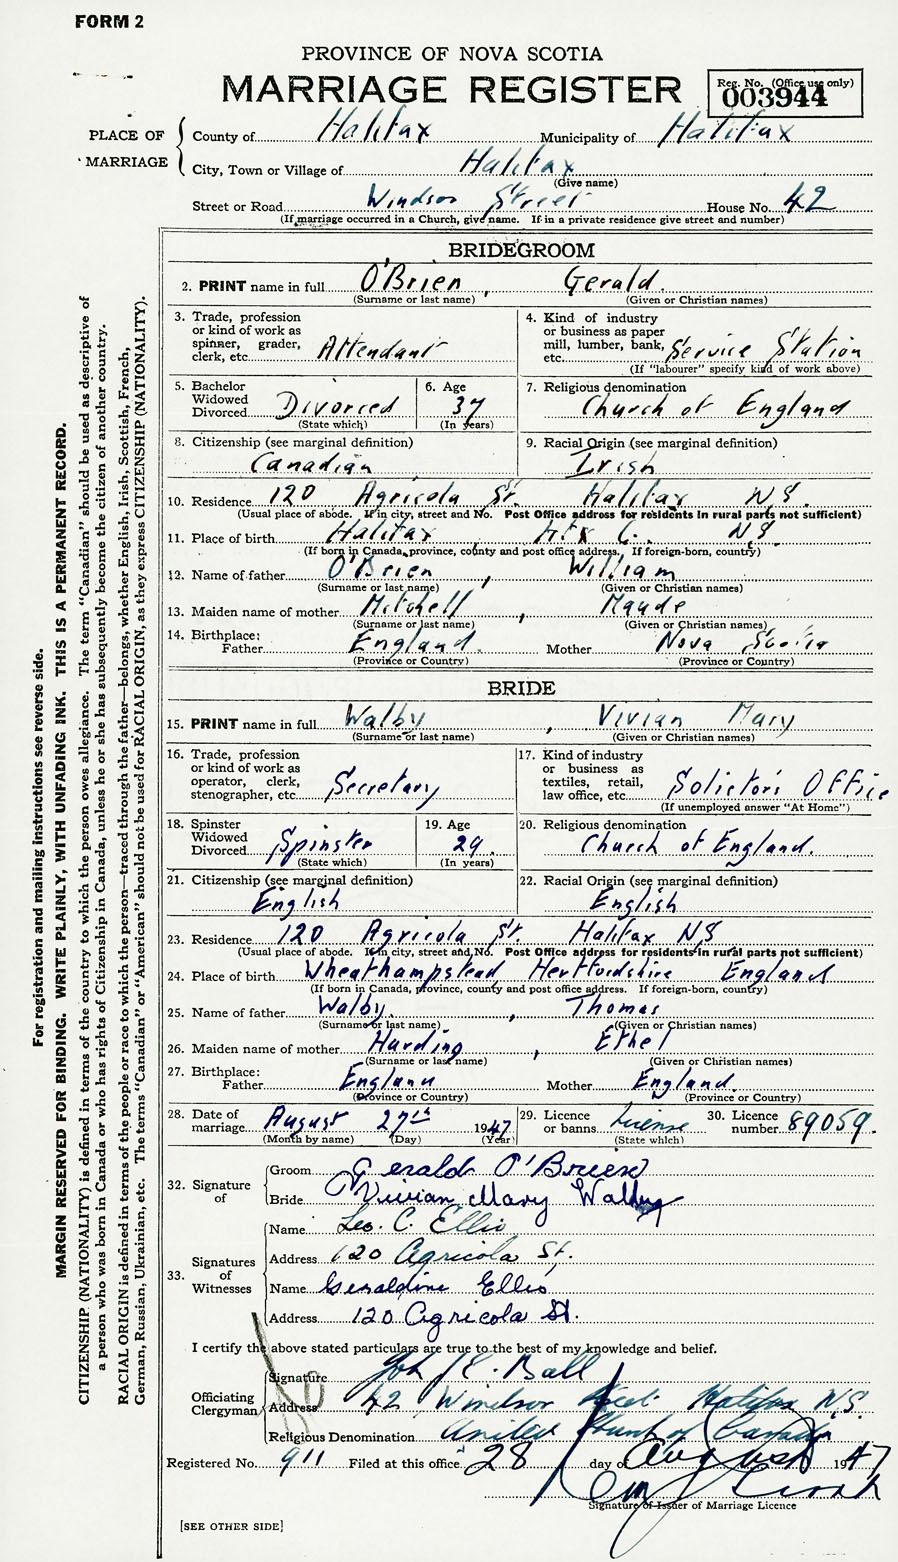 FORM 2
PROVINCE OF NOVA SCOTIA
MARRIAGE REGISTER
Reg. No. (Office use only)
003944
PLACE OF MARRIAGE
County of Halifax Municipality of Halifax
City, Town or Village of Halifax
(Give name)
Street or Road Windsor Street House No. 42
(If marriage occurred in a Church, give name. If in a private residence give street and number)
BRIDEGROOM
2. PRINT name in full O'Brien, Gerald.
(Surname or last name) (Given or Christian names)
3. Trade, profession or kind of work as spinner, grader, clerk, etc. Attendant
4. Kind of industry or business as paper mill, lumber, bank, etc. Service Station
(If "labourer" specify kind of work above)
5. Bachelor Widowed Divorced Divorced
(State which)
6. Age 37
(In years)
7. Religious denomination
Church of England
8. Citizenship (see marginal definition)
Canadian
9. Racial Origin (see marginal definition)
Irish
10. Residence 120 Agricola St. Halifax NS.
(Usual place of abode. If in city, street and No. Post Office address for residents in rural parts not sufficient)
11. Place of birth Halifax Hfx C. N.S.
(If born in Canada, province, county and post office address. If foreign-born, country)
12. Name of father O'Brien, William
(Surname or last name) (Given or Christian names)
13. Maiden name of mother Mitchell, Maude
(Surname or last name) (Given or Christian names)
14. Birthplace: Father England. Mother Nova Scotia
(Province or Country) (Province or Country)
BRIDE
15. PRINT name in full Walby, Vivian Mary
(Surname or last name) (Given or Christian names)
16. Trade, profession or kind of work as operator, clerk, stenographer, etc. Secretary
17. Kind of industry or business as textiles, retail, law office, etc. Solictors Office
(If unemployed answer "At Home")
18. Spinster Widowed Divorced Spinster
(State which)
19. Age 29.
(In years)
20. Religious denomination
Church of England.
21. Citizenship (see marginal definition)
English
22. Racial Origin (see marginal definition)
English
23. Residence 120 Agricola St. Halifax NS
(Usual place of abode. If in city, street and No. Post Office address for residents in rural parts not sufficient)
24. Place of birth Wheathampstead Hertfordshire England
(If born in Canada, province, county and post office address. If foreign-born, country)
25. Name of father Walby, Thomas
(Surname or last name) (Given or Christian names)
26. Maiden name of mother Harding, Ethel
(Surname or last name) (Given or Christian names)
27. Birthplace: Father England Mother England.
(Province or Country) (Province or Country)
28. Date of marriage August 27th 1947
(Month by name) (Day) (Year)
29. Licence or banns License
(State which)
30. Licence number 89059.
32. Signature of
Groom Gerald O'Brien
Bride Vivian Mary Walby
33. Signatures of Witnesses
Name Leo. C. Ellis
Address 120 Agricola St.
Name Geraldine Ellis
Address 120 Agricola St.
I certify the above stated particulars are true to the best of my knowledge and belief.
Officiating Clergyman
Signature John E. Ball
Address 42 Windsor Street Halifax N.S.
Religious Denomination United Church of Canada
Registered No. 911 Filed at this office 28 day of August 1947
Signature of Issuer of Marriage Licence
[SEE OTHER SIDE]
For registration and mailing instructions see reverse side.
MARGIN RESERVED FOR BINDING. WRITE PLAINLY, WITH UNFADING INK. THIS IS A PERMANENT RECORD.
CITIZENSHIP (NATIONALITY) is defined in terms of the country to which the person owes allegiance. The term "Canadian" should be used as descriptive of
a person who was born in Canada or who has rights of Citizenship in Canada, unless he or she has subsequently become the citizen of another country.
RACIAL ORIGIN is defined in terms of the people or race to which the person—traced through the father—belongs, whether English, Irish, Scottish, French,
German, Russian, Ukrainian, etc. The terms "Canadian" or "American" should not be used for RACIAL ORIGIN, as they express CITIZENSHIP (NATIONALITY).